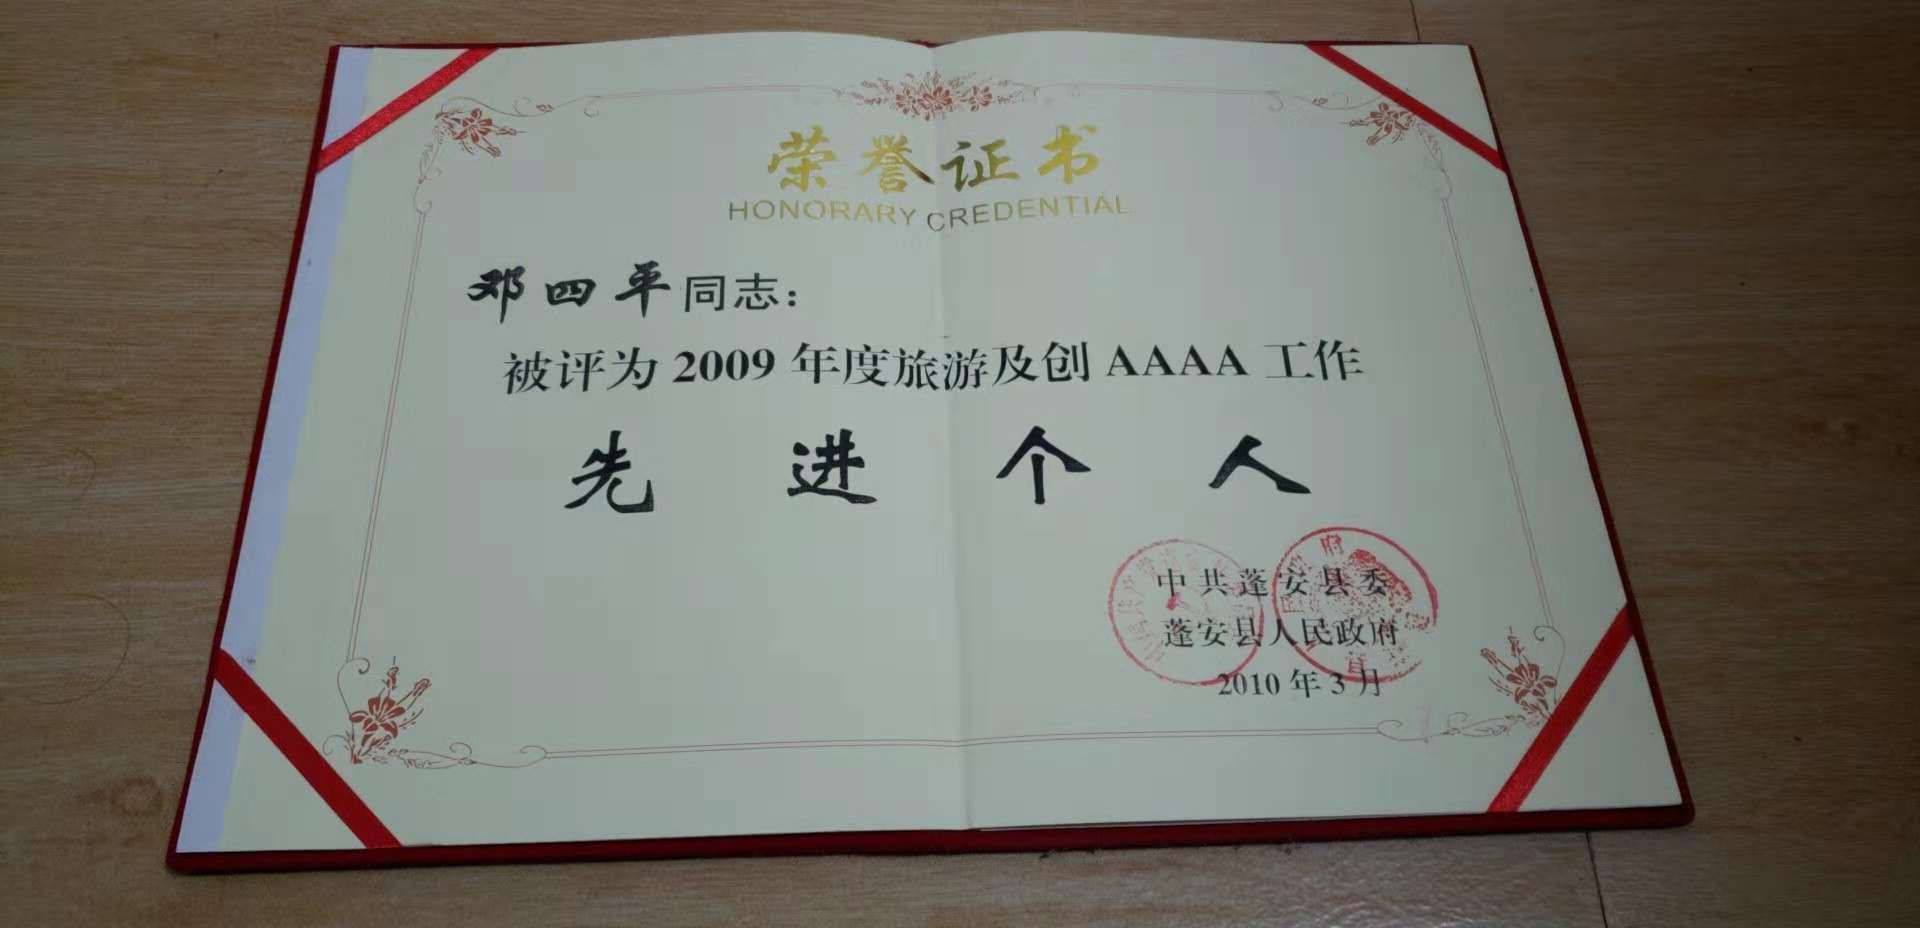 荣誉证书
HONORARY CREDENTIAL
邓四平同志：
被评为 2009 年度旅游及创 AAAA 工作
先 进 个 人
中共蓬安县委
蓬安县人民政府
2010 年 3 月